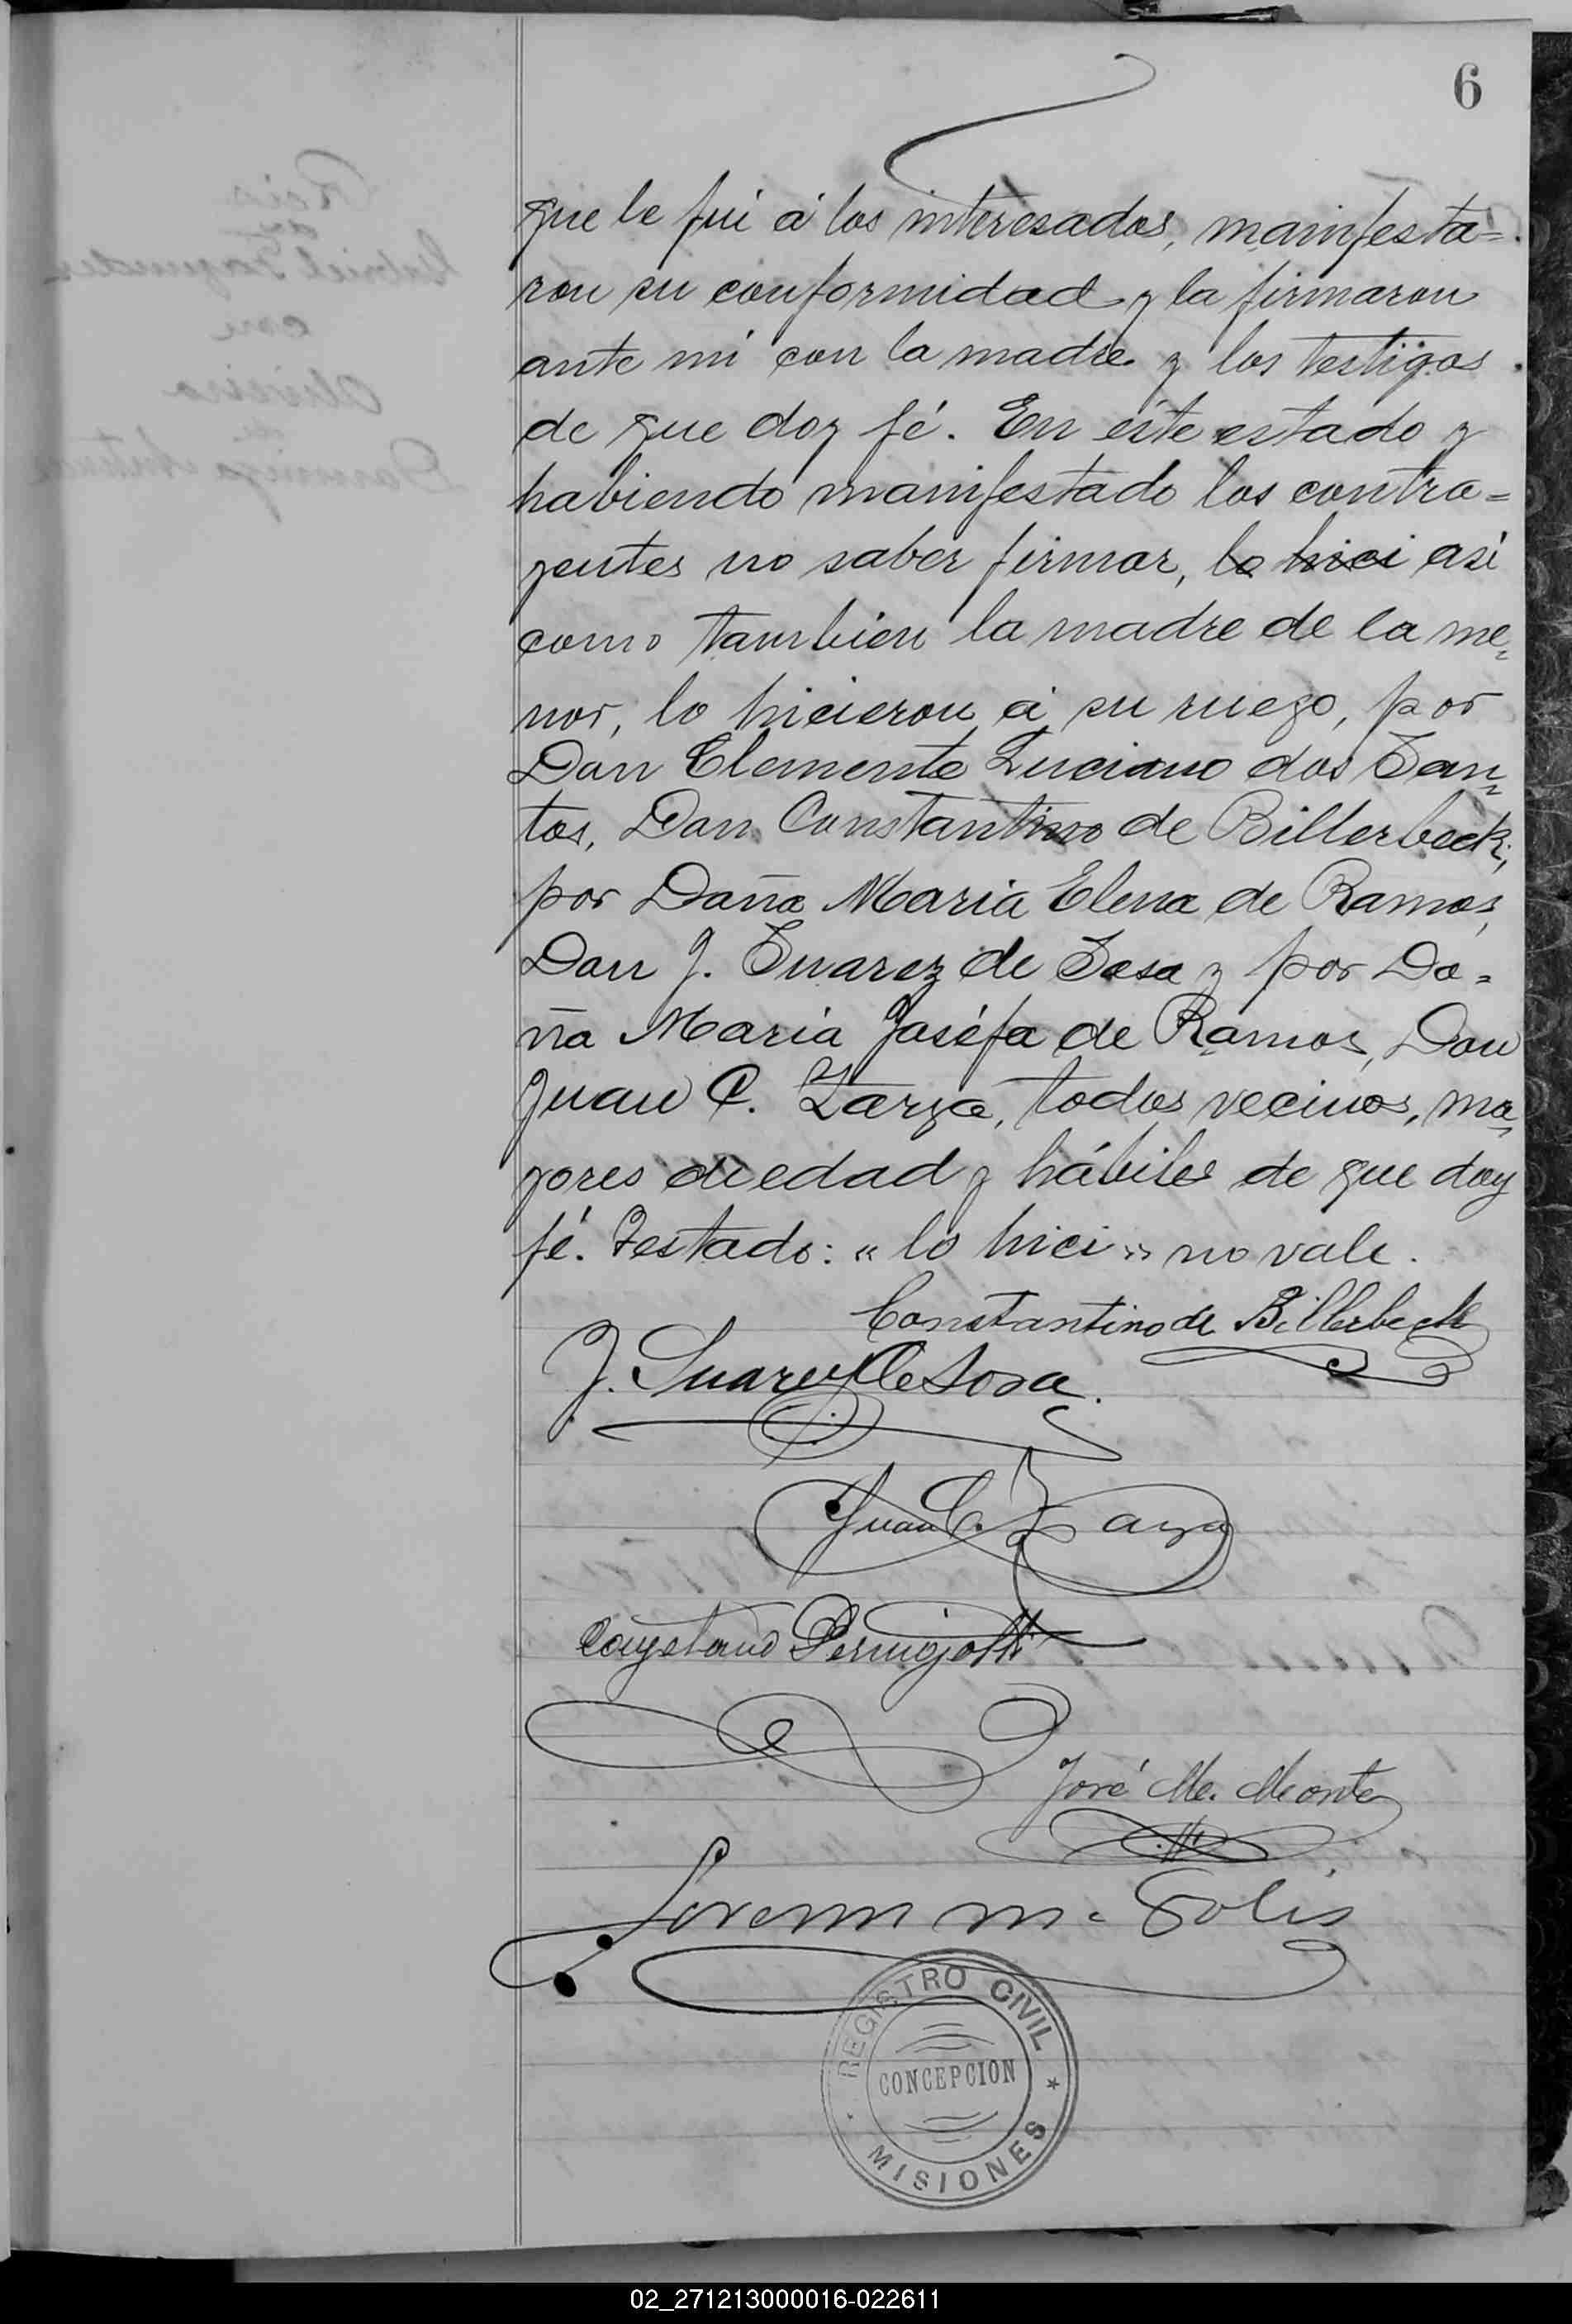 6
que le fui á los interesados, manifesta=
ron su conformidad y la firmaron
ante mi con la madre y los testigos
de que doy fé. En éste estado y
habiendo manifestado los contra=
yentes no saber firmar, lo hici asi
como tambien la madre de la me=
nor, lo hicieron á su ruego, por
Don Clemente Luciano dos San=
tos, Don Constantino de Billerbeck;
por Doña Maria Elena de Ramos,
Don J. Suarez de Sosa y por Do=
ña Maria Joséfa de Ramos, Don
Juan C. Zarza, todos vecinos, ma=
yores de edad y hábiles de que doy
fé. Testado: "lo hici" no vale.
Constantino de Billerbeck
J. Suarez de Sosa.
Juan C. Zarza
Cayetano
José M. Monte
Lorenzo M. Solis
REGISTRO CIVIL
CONCEPCION
MISIONES
02_271213000016-022611